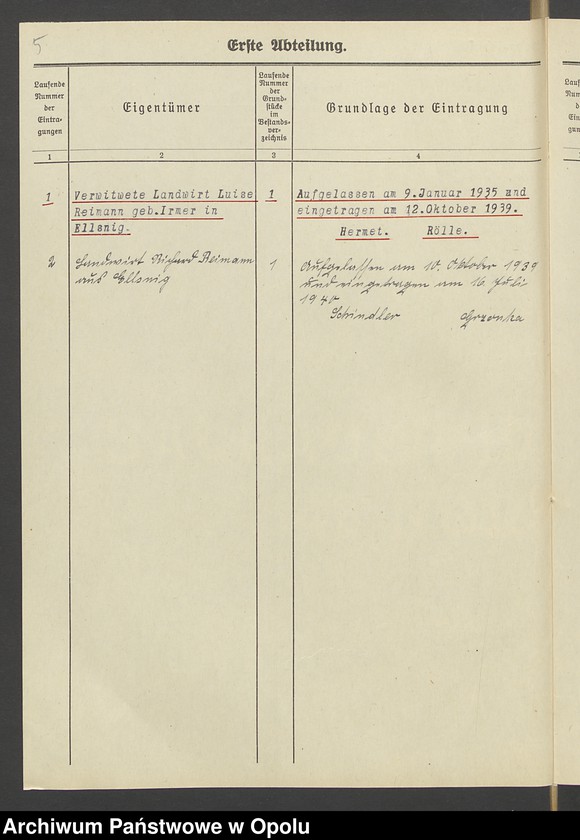 5
Erste Abteilung.
Laufende
Nummer
der
Eintra-
gungen
Eigentümer
Laufende
Nummer
der
Grund-
stücke
im
Bestands-
ver-
zeichnis
Grundlage der Eintragung
1
2
3
4
1
Verwitwete Landwirt Luise
Reimann geb.Irmer in
Ellsnig.
1
Aufgelassen am 9.Januar 1935 und
eingetragen am 12.Oktober 1939.
Hermet. Rölle.
2
Landwirt Richard Reimann
aus Ellsnig
1
Aufgelassen am 10. Oktober 1939
und eingetragen am 16. Juli
1940
Schindler Grzonka
Archiwum Państwowe w Opolu